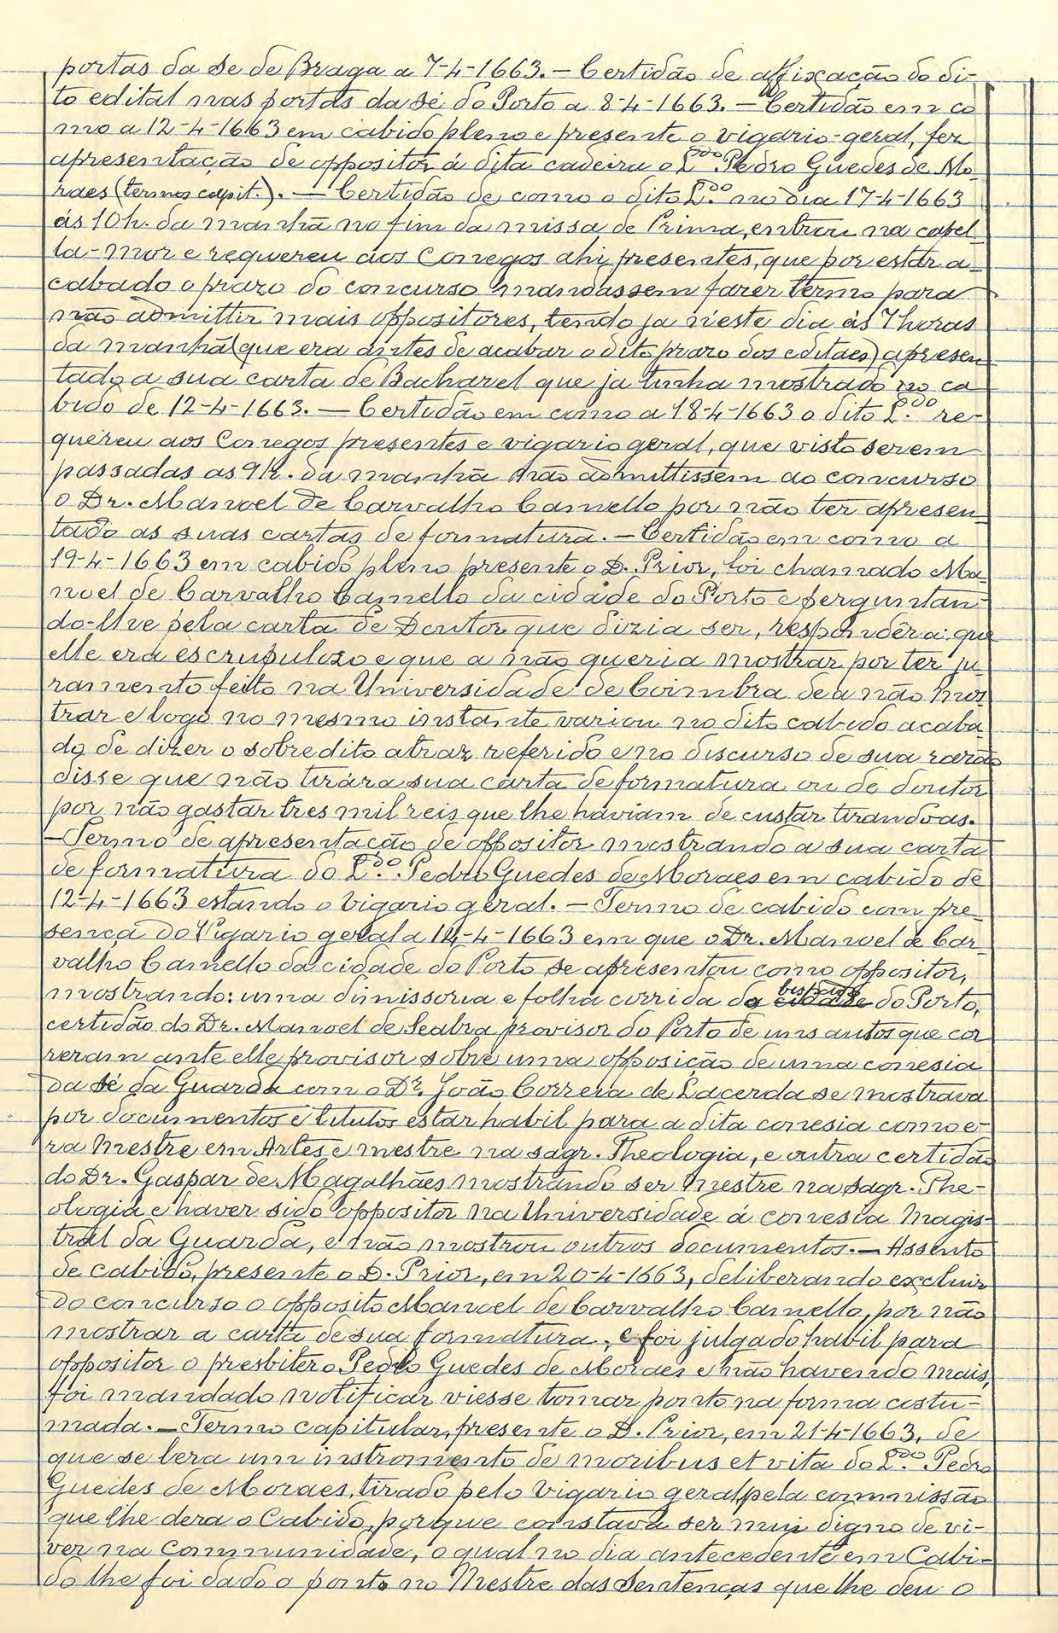 portas da Se de Braga a 7-4-1663. — Certidão de affixação do di-
to edital nas portas da Sé do Porto a 8-4-1663. — Certidão em co
mo a 12-4-1663 em cabido pleno e presente o vigario-geral, fez
apresentação de oppositor á dita cadeira o L.do Pedro Guedes de Mo-
raes (termos capit.). — Certidão de como o dito L.do no dia 17-4-1663
ás 10 h. da manhã no fim da missa de Prima, entrou na capel-
la-mor e requereu aos Conegos ahi presentes, que por estar a-
cabado o prazo do concurso mandassem fazer termo para
não admittir mais oppositores, tendo ja n'este dia ás 7 horas
da manhã (que era antes de acabar o dito prazo dos editaes) apresen
tado a sua carta de Bacharel que ja tinha mostrado no ca
bido de 12-4-1663. — Certidão em como a 18-4-1663 o dito L.do re-
quereu aos Conegos presentes e vigario geral, que visto serem
passadas as 9 h. da manhã não admittissem ao concurso
o Dr. Manoel de Carvalho Camello por não ter apresen-
tado as suas cartas de formatura. — Certidão em como a
19-4-1663 em cabido pleno presente o D. Prior, foi chamado Ma-
noel de Carvalho Camello da cidade do Porto e perguntan-
do-lhe pela carta de Doutor que dizia ser, respondêra: que
elle era escrupulozo e que a não queria mostrar por ter ju-
ramento feito na Universidade de Coimbra de a não mos
trar e logo no mesmo instante variou no dito cabido acaba
do de dizer o sobredito atraz referido e no discurso de sua razão
disse que não tirára sua carta de formatura ou de doutor
por não gastar tres mil reis que lhe haviam de custar tirandoas.
— Termo de apresentação de oppositor mostrando a sua carta
de formatura do L.do Pedro Guedes de Moraes em cabido de
12-4-1663 estando o Vigario geral. — Termo de cabido com pre-
sença do Vigario geral a 14-4-1663 em que o Dr. Manoel de Car-
valho Camello da cidade do Porto se apresentou como oppositor,
mostrando: uma dimissoria e folha corrida do bispado do Porto,
certidão do Dr. Manoel de Seabra provisor do Porto de uns autos que cor
reram ante elle provisor sobre uma opposição de uma conesia
da Sé da Guarda com o Dr. João Correra de Lacerda se mostrava
por documentos e titulos estar habil para a dita conesia como e-
ra Mestre em Artes e mestre na sagr. Theologia, e outra certidão
do Dr. Gaspar de Magalhães mostrando ser mestre na sagr. The-
ologia e haver sido oppositor na Universidade á conesia Magis-
tral da Guarda, e não mostrou outros documentos. — Assento
de cabido, presente o D. Prior, em 20-4-1663, deliberando excluir
do concurso o opposito Manoel de Carvalho Camello, por não
mostrar a carta de sua formatura, e foi julgado habil para
oppositor o presbitero Pedro Guedes de Moraes e não havendo mais,
foi mandado notificar viesse tomar ponto na forma custu-
mada. — Termo capitular, presente o D. Prior, em 21-4-1663, de
que se lera um instromento de moribus et vita do L.do Pedro
Guedes de Moraes, tirado pelo Vigario geral, pela commissão
que lhe dera o Cabido, porque constava ser mui digno de vi-
ver na Communidade, o qual no dia antecedente em Cabi-
do lhe foi dado o ponto no Mestre das Sentenças que lhe deu o